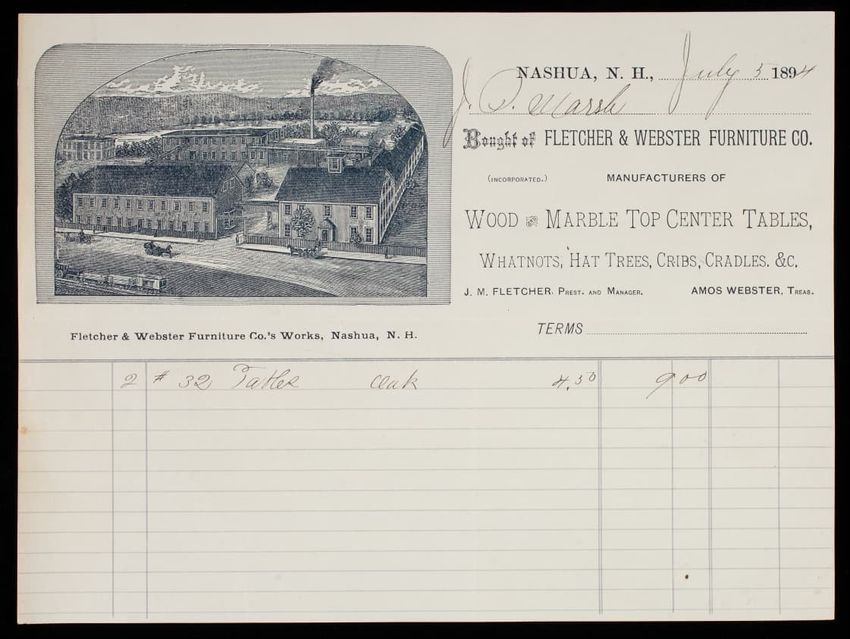 NASHUA, N. H., July 5 1894
J. P. Marsh
Bought of FLETCHER & WEBSTER FURNITURE CO.
(INCORPORATED.) MANUFACTURERS OF
WOOD & MARBLE TOP CENTER TABLES,
WHATNOTS, HAT TREES, CRIBS, CRADLES. &C.
J. M. FLETCHER, PREST. AND MANAGER. AMOS WEBSTER, TREAS.
Fletcher & Webster Furniture Co.'s Works, Nashua, N. H.
TERMS
2 # 32 Tables Oak 4.50 9 00